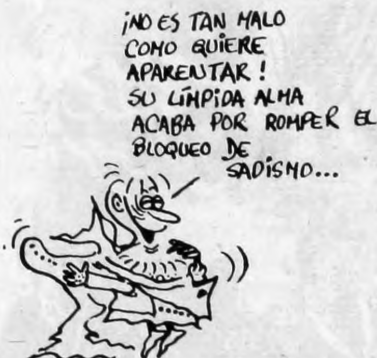 ¡NO ES TAN MALO
COMO QUIERE
APARENTAR!
SU LÍMPIDA ALMA
ACABA POR ROMPER EL
BLOQUEO DE
SADISMO...